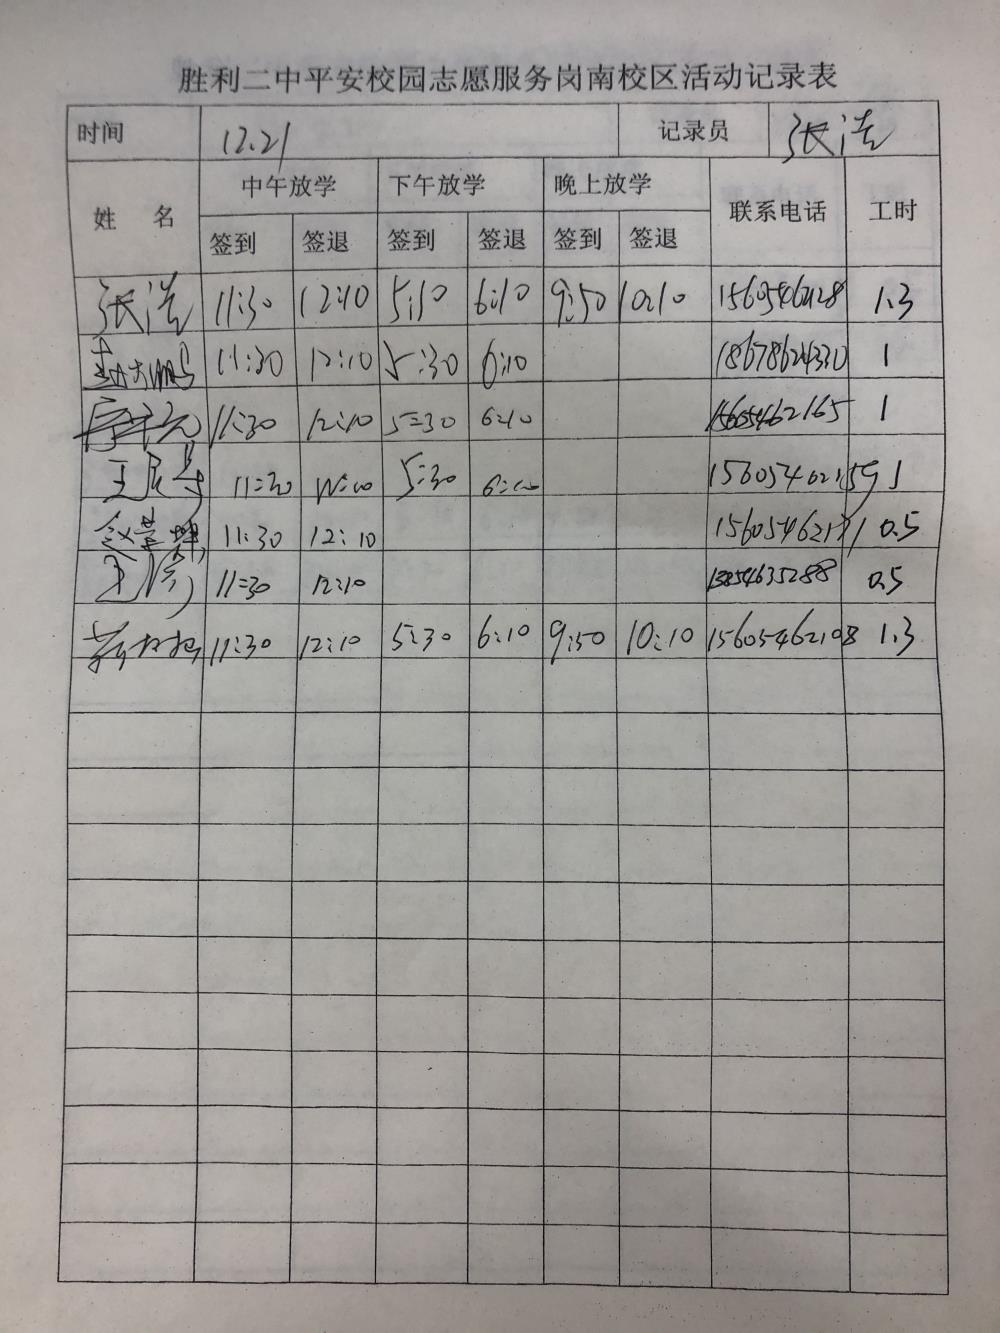 胜利二中平安校园志愿服务岗南校区活动记录表
时间 12.21 记录员 张浩
姓 名 中午放学 下午放学 晚上放学 联系电话 工时
签到 签退 签到 签退 签到 签退
张浩 11:30 12:10 5:10 6:10 9:50 10:10 15605462128 1.3
11:30 12:10 5:30 6:10 18678624330 1
11:30 12:10 5:30 6:10 15605462165 1
11:30 5:30 15605462159 1
11:30 12:10 0.5
11:30 12:10 13854635288 0.5
11:30 12:10 5:30 6:10 9:50 10:10 15605462108 1.3